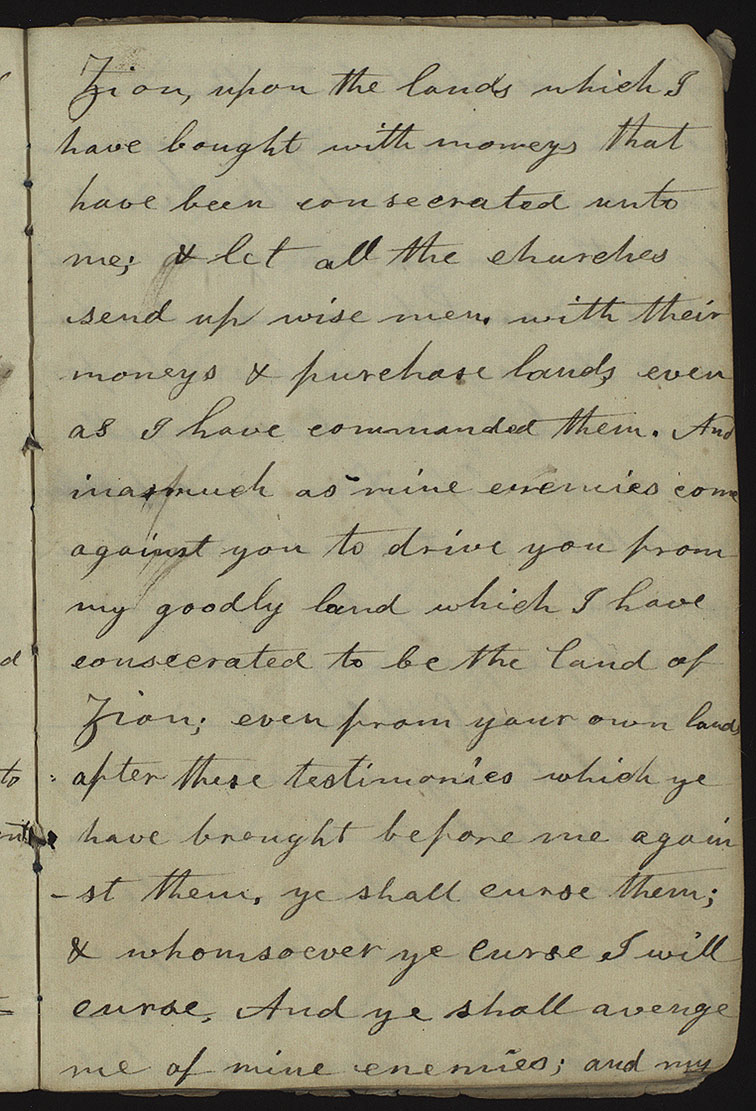 Zion, upon the lands which I
have bought with moneys that
have been consecrated unto
me; & let all the churches
send up wise men. with their
moneys & purchase lands even
as I have commanded them. And
inasmuch as mine enemies come
against you to drive you from
my goodly land which I have
consecrated to be the land of
Zion; even from your own lands
after these testimonies which ye
have brought before me again
-st them, ye shall curse them;
& whomsoever ye curse I will
curse, And ye shall avenge
me of mine enemies; and my
d
to